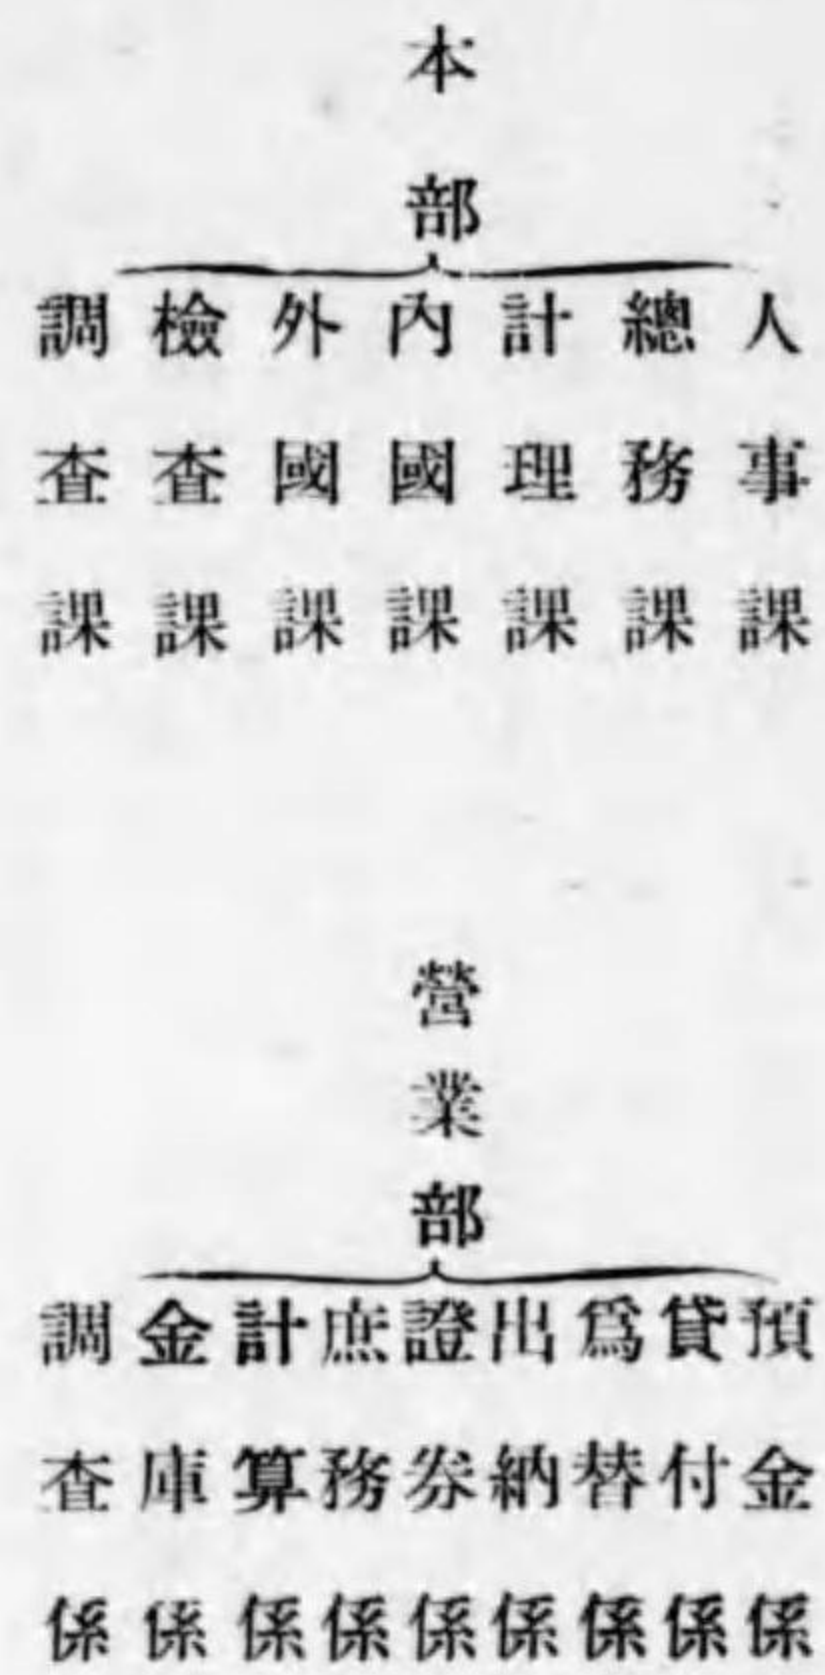 本部
人事課
總務課
計理課
內國課
外國課
檢查課
調查課
營業部
預金係
貸付係
爲替係
出納係
證券係
庶務係
計算係
金庫係
調查係